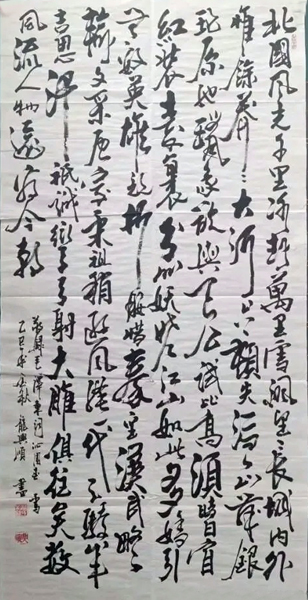 北國風光千里冰封萬里雪飄望長城內外
惟餘莽〻大河上下頓失滔〻山舞銀
蛇原馳蠟象欲與天公試比高須晴日看
紅裝素裹分外妖嬈江山如此多嬌引
無數英雄競折腰惜秦皇漢武略
輸文采唐宗宋祖稍遜風騷一代天驕成
吉思汗祇識彎弓射大雕俱往矣數
風流人物還看今朝
敬錄毛澤東詞沁園春雪
乙巳年 龍興順書